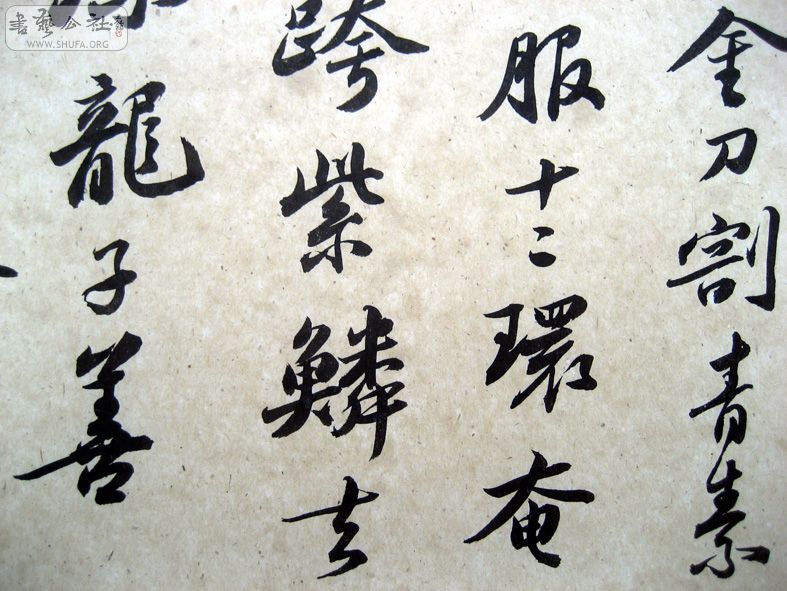 金刀割青素
服十二環奄
跨紫鱗去
龍子善
書藝公社
WWW.SHUFA.ORG